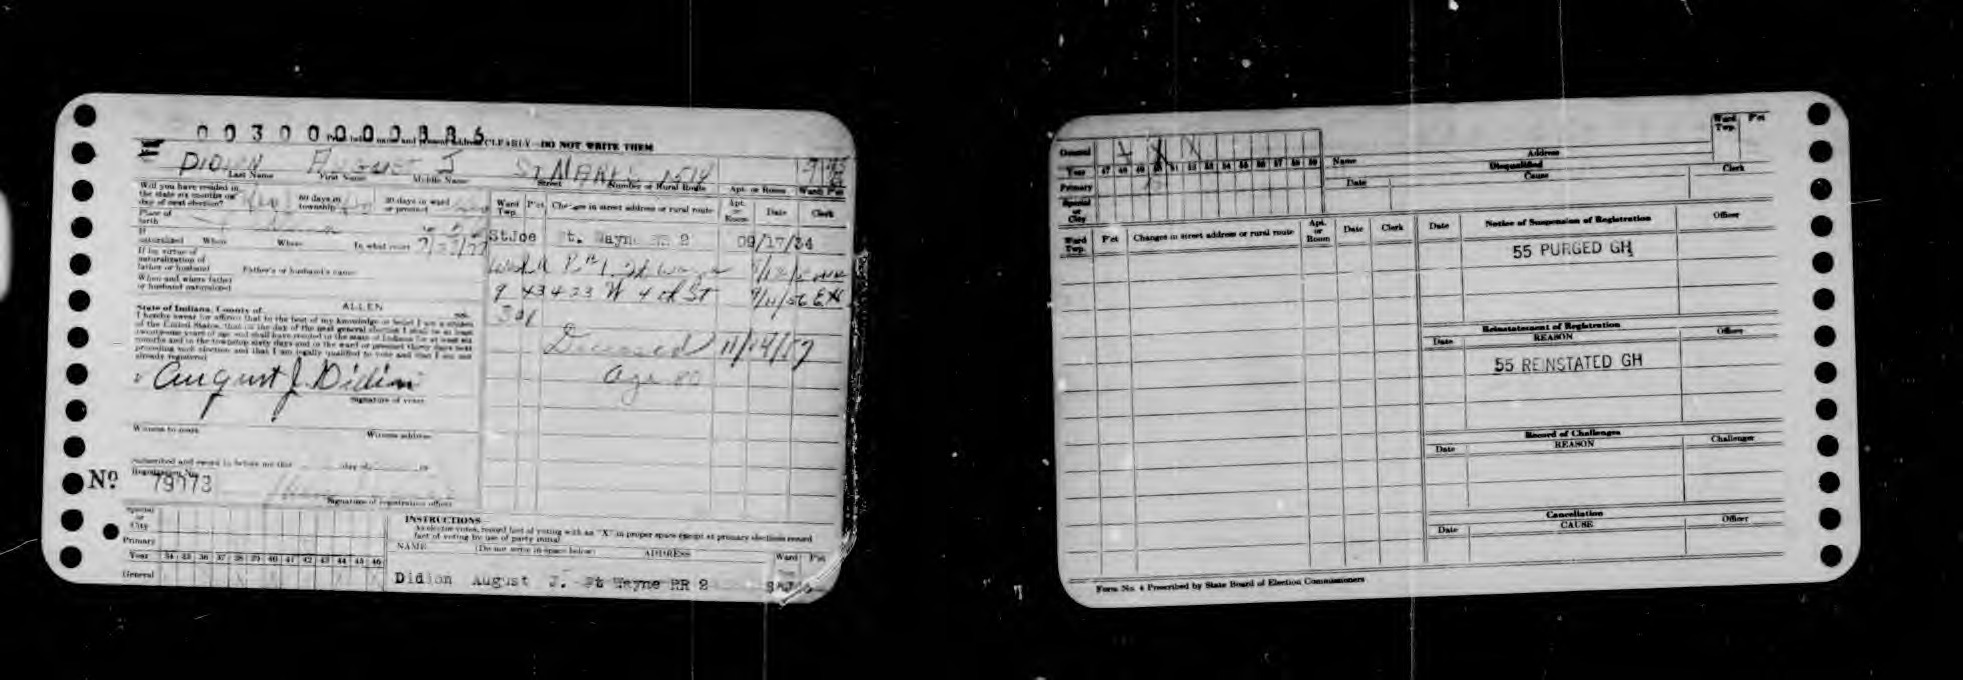 00300000886
CLEARLY—DO NOT WRITE THEM
DIDION AUGUST J ST MARYS 1514
Last Name First Name Middle Name Street Number or Rural Route Apt. or Room Ward P'ct
Will you have resided in
the state six months on
day of next election? 60 days in
township 30 days in ward
or precinct
Place of
birth
If
naturalized When Where In what court
If by virtue of
naturalization of
father or husband Father's or husband's name
When and where father
or husband naturalized
State of Indiana, County of ALLEN ss.
I hereby swear (or affirm) that to the best of my knowledge or belief I am a citizen
of the United States, that on the day of the next general election I shall be at least
twenty-one years of age and shall have resided in the state of Indiana for at least six
months and in the township sixty days and in the ward or precinct thirty days next
preceding such election and that I am legally qualified to vote and that I am not
already registered
August J. Didion
Signature of voter
Witness to mark Witness address
Subscribed and sworn to before me this day of 19
Registration No.
Nº 79773
Signature of registration officer
Ward
Twp. P'ct Changes in street address or rural route Apt.
or
Room Date Clerk
StJoe Ft. Wayne RR 2 09/17/34
9 43 423 W 4th St 9/11/56
301
Deceased 11/14/57
Age 80
Special
or
City
Primary
Year 34 35 36 37 38 39 40 41 42 43 44 45 46
General
INSTRUCTIONS
As elector votes, record fact of voting with an "X" in proper space except at primary elections record
fact of voting by use of party initial
NAME (Do not write in space below) ADDRESS Ward P'ct
Didion August J. Ft Wayne RR 2
General
Year 47 48 49 50 51 52 53 54 55 56 57 58 59
Primary
Special
or
City
Ward
Twp. P'ct
Name Address
Disqualified
Date Cause Clerk
Ward
Twp. P'ct Changes in street address or rural route Apt.
or
Room Date Clerk
Date Notice of Suspension of Registration Officer
55 PURGED GH
Reinstatement of Registration
Date REASON Officer
55 REINSTATED GH
Record of Challenges
Date REASON Challenger
Cancellation
Date CAUSE Officer
Form No. 4 Prescribed by State Board of Election Commissioners